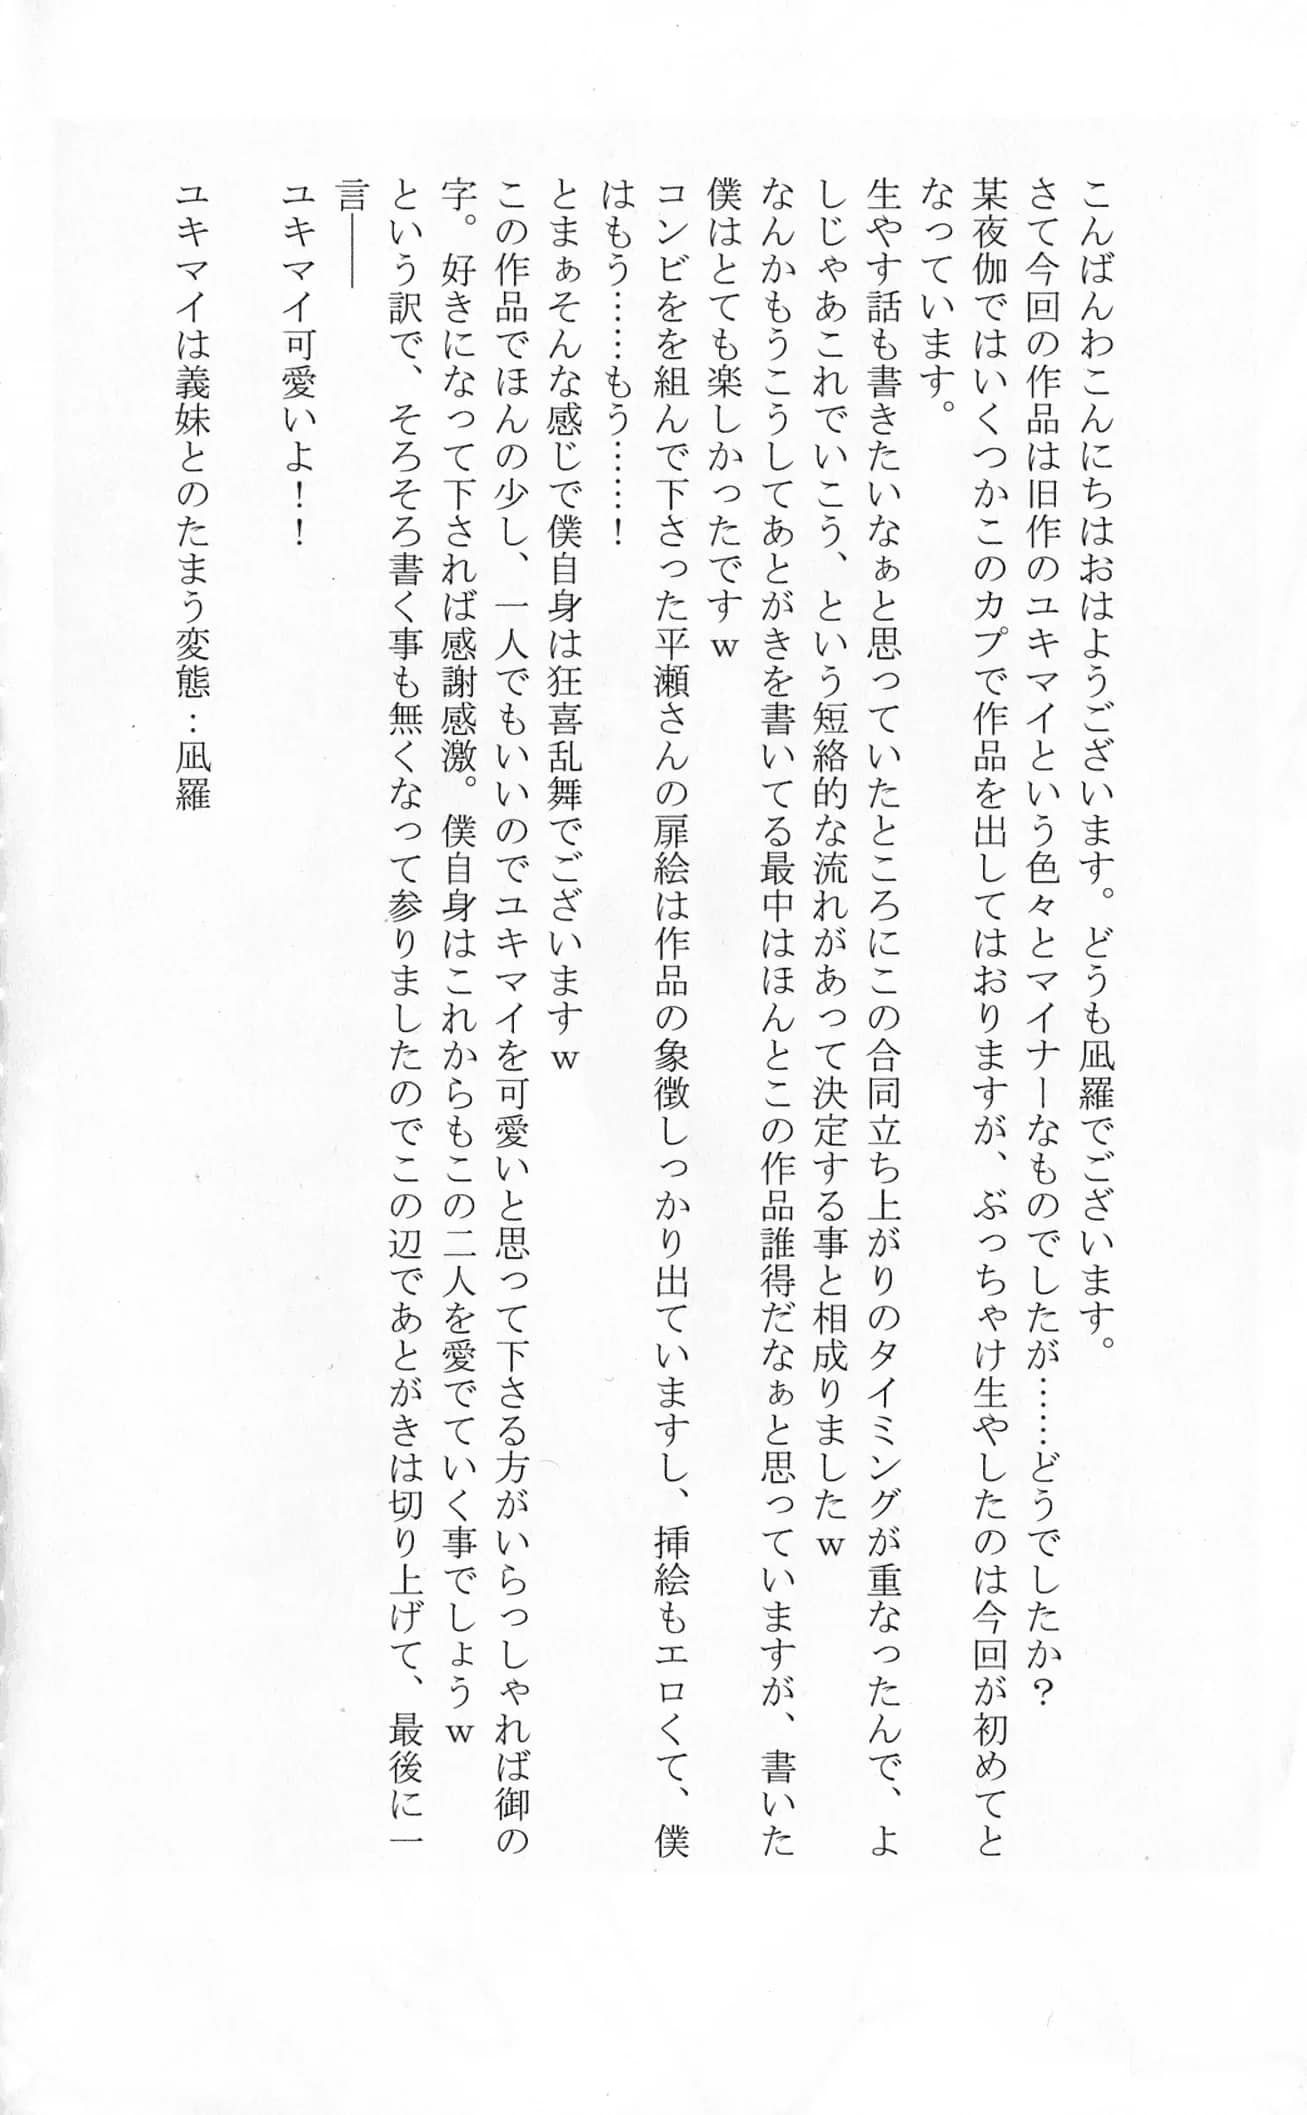 こんばんわこんにちはおはようございます。どうも凪羅でございます。
さて今回の作品は旧作のユキマイという色々とマイナーなものでしたが……どうでしたか？
某夜伽ではいくつかこのカプで作品を出してはおりますが、ぶっちゃけ生やしたのは今回が初めてと
なっています。
生やす話も書きたいなぁと思っていたところにこの合同立ち上がりのタイミングが重なったんで、よ
しじゃあこれでいこう、という短絡的な流れがあって決定する事と相成りましたｗ
なんかもうこうしてあとがきを書いてる最中はほんとこの作品誰得だなぁと思っていますが、書いた
僕はとても楽しかったですｗ
コンビをを組んで下さった平瀬さんの扉絵は作品の象徴しっかり出ていますし、挿絵もエロくて、僕
はもう……もう……！
とまぁそんな感じで僕自身は狂喜乱舞でございますｗ
この作品でほんの少し、一人でもいいのでユキマイを可愛いと思って下さる方がいらっしゃれば御の
字。好きになって下されば感謝感激。僕自身はこれからもこの二人を愛でていく事でしょうｗ
という訳で、そろそろ書く事も無くなって参りましたのでこの辺であとがきは切り上げて、最後に一
言――
ユキマイ可愛いよ！！
ユキマイは義妹とのたまう変態：凪羅